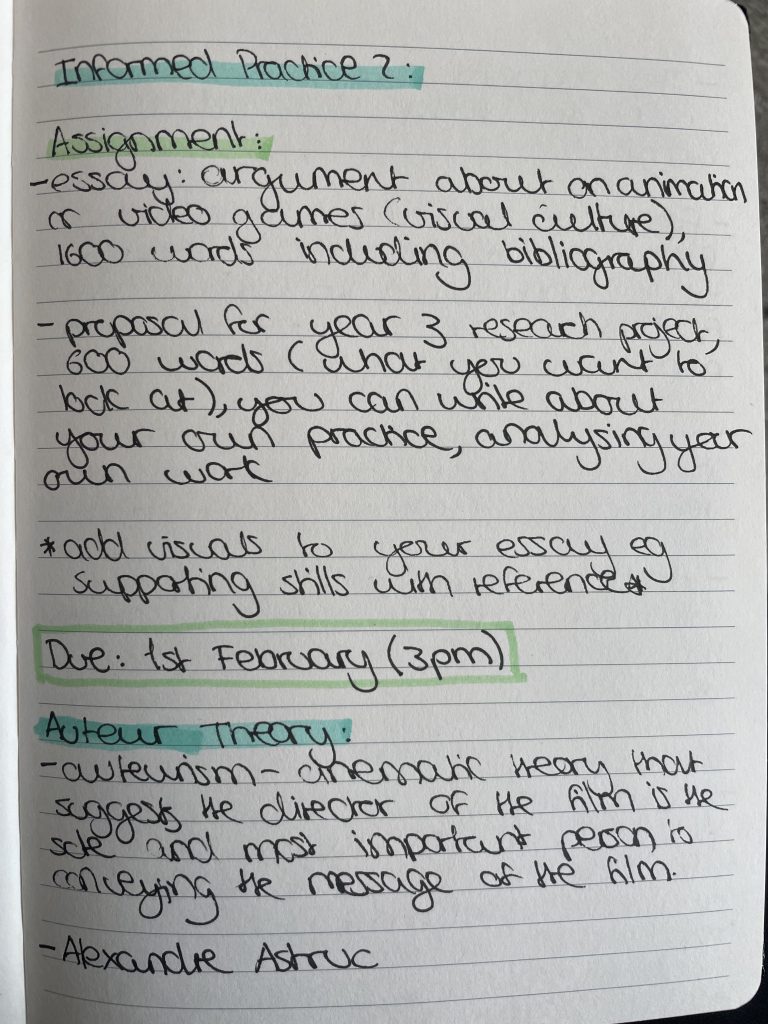 Informed Practice 2:
Assignment:
-essay: argument about an animation
or video games (visual culture),
1600 words including bibliography
- proposal for year 3 reseach project,
600 words (what you want to
look at), you can write about
your own practice, analysing your
own work
*add visuals to your essay eg
supporting stills with reference*
Due: 1st February (3pm)
Auteur Theory:
-auteurism- cinematic theory that
suggests the director of the film is the
sole and most important person in
conveying the message of the film.
-Alexandre Astruc